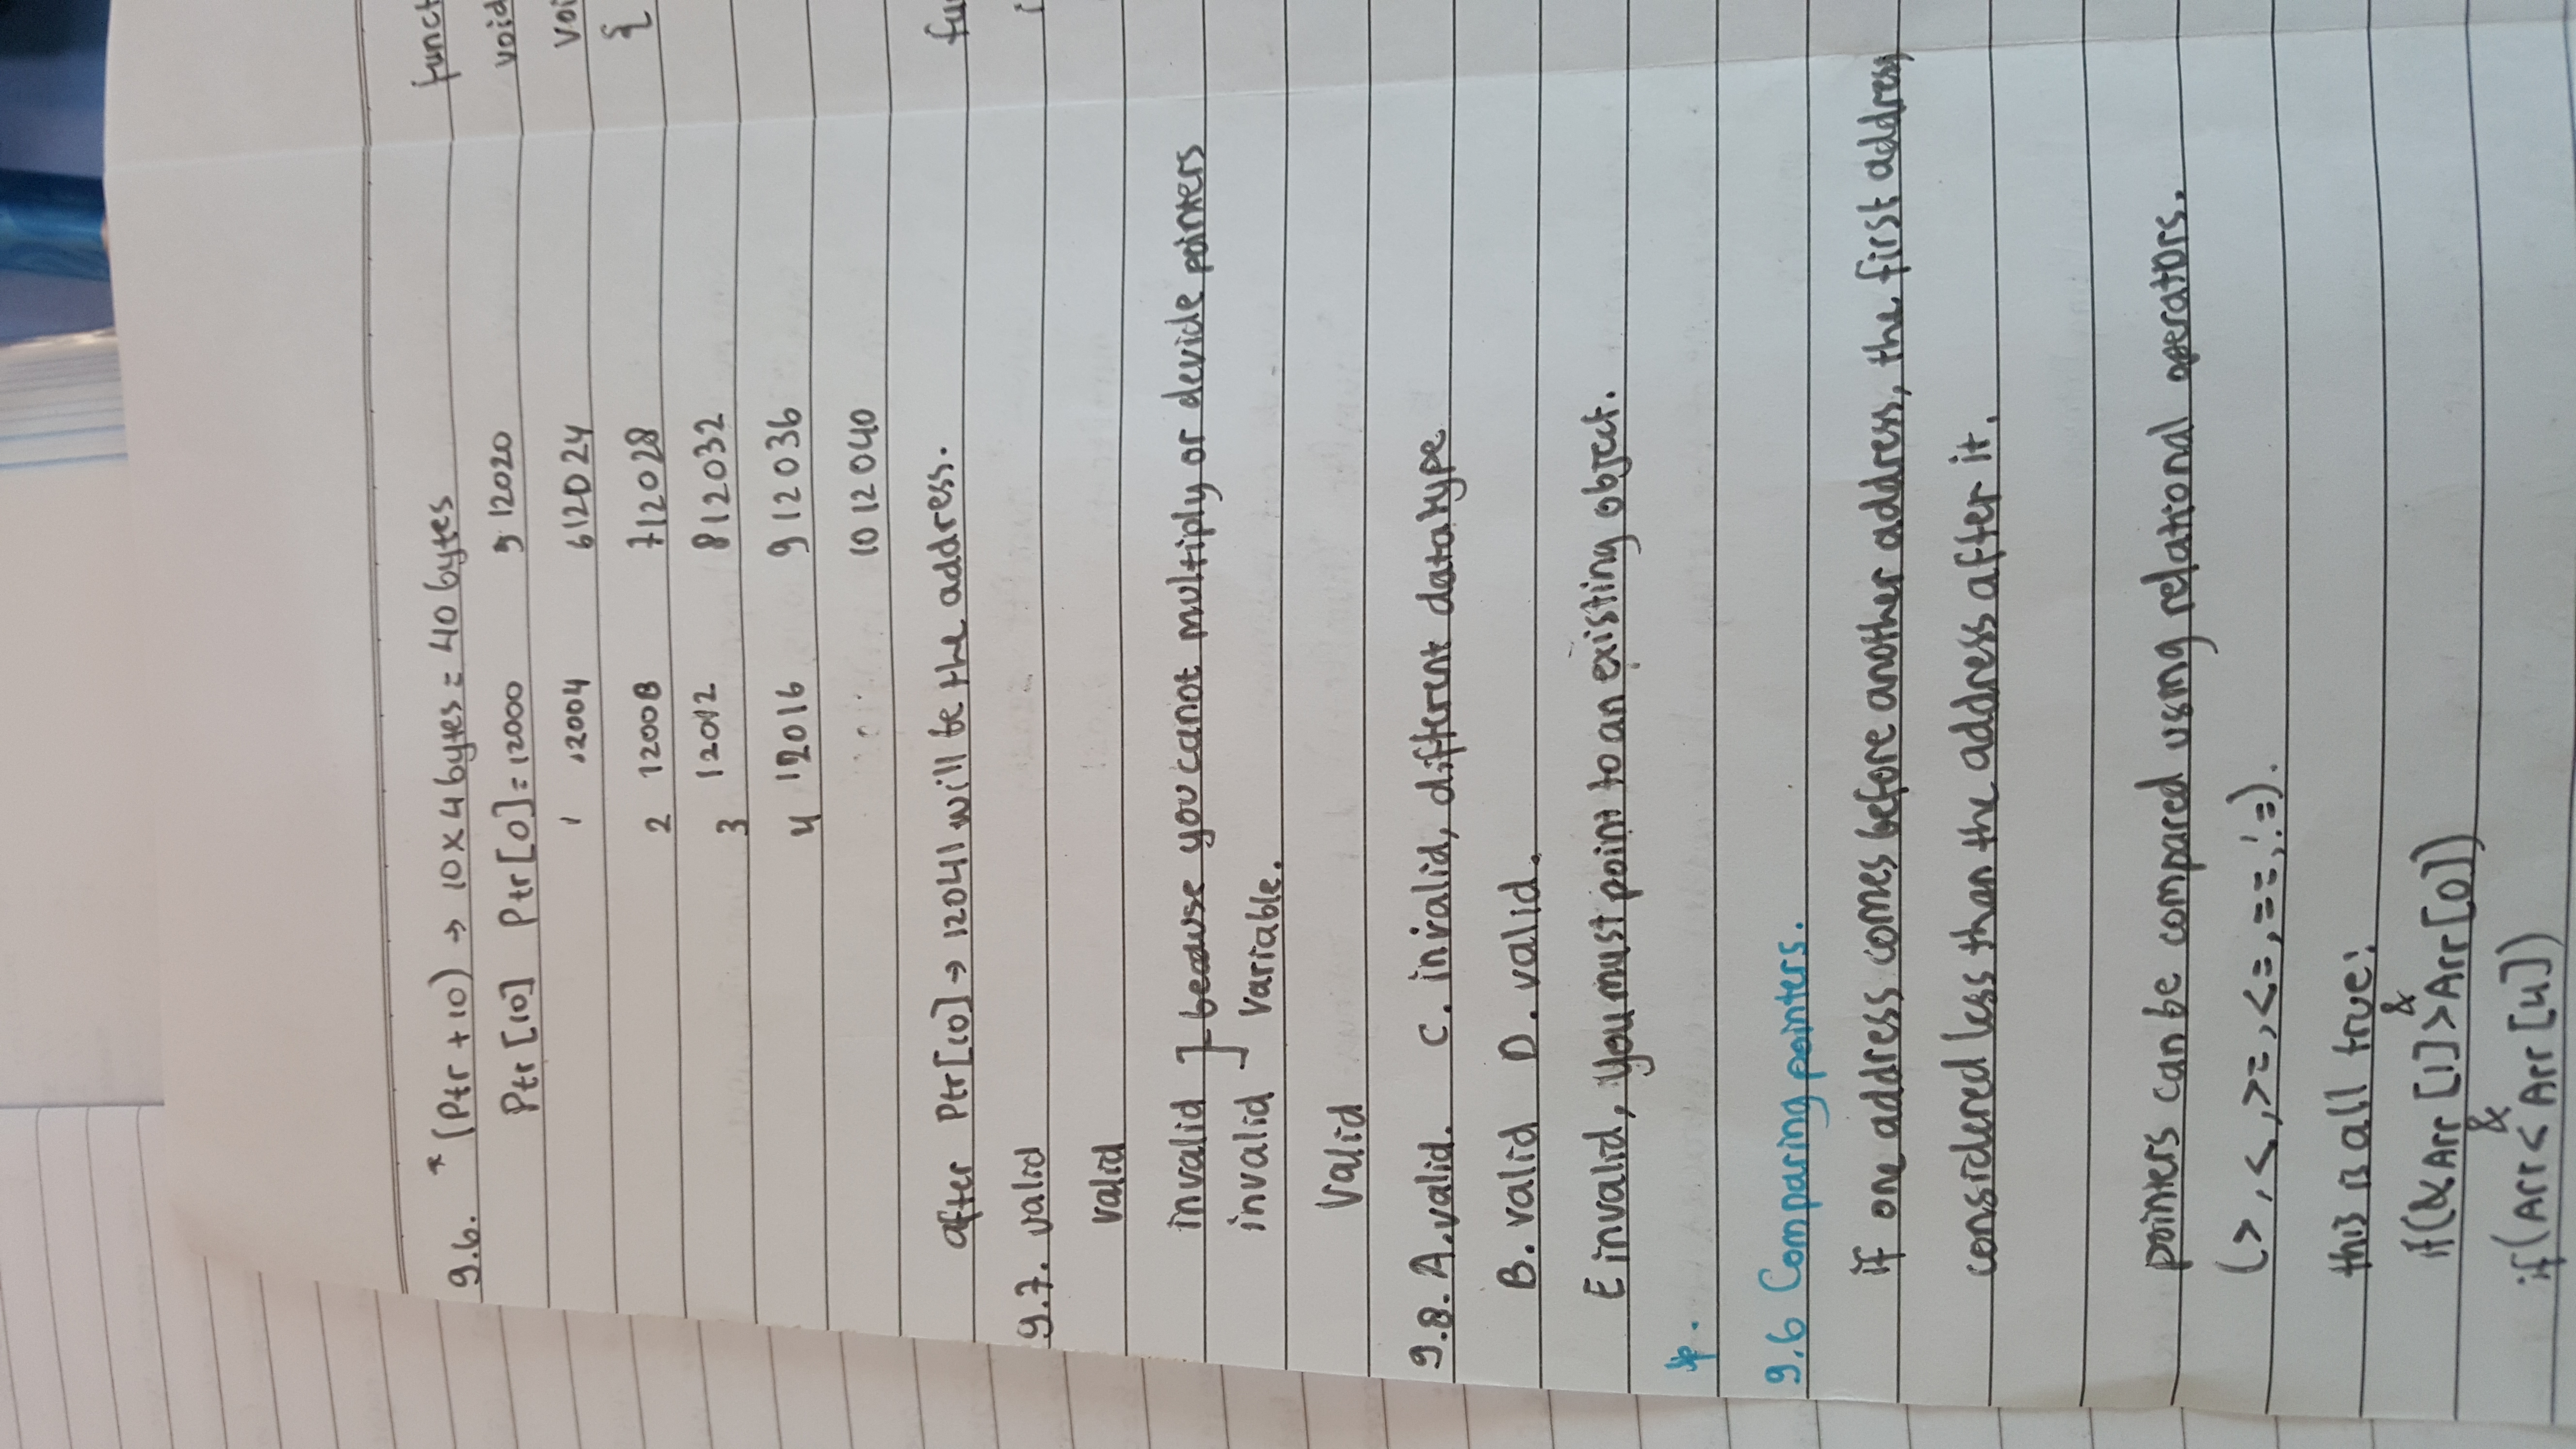 9.6. *(Ptr + 10) → 10 x 4 bytes = 40 bytes
Ptr [10] Ptr [0] = 12000 5 12020
1 12004 6 12024
2 12008 7 12028
3 12012 8 12032
4 12016 9 12036
10 12040
after Ptr [10] → 12041 will be the address.
9.7. valid
valid
invalid ] because you canot multiply or devide pointers
invalid variable.
Valid
9.8. A. valid. C. invalid, different data type
B. valid D. valid.
E invalid, you must point to an existing object.
9.6 Comparing pointers.
if one address comes before another address, the first address
considered less than the address after it.
pointers can be compared using relational operators.
(>, <, >=, <=, ==, !=).
this is all true:
if (& Arr [1] > & Arr [0])
if (Arr < & Arr [4])
funct
void
voi
{
fu